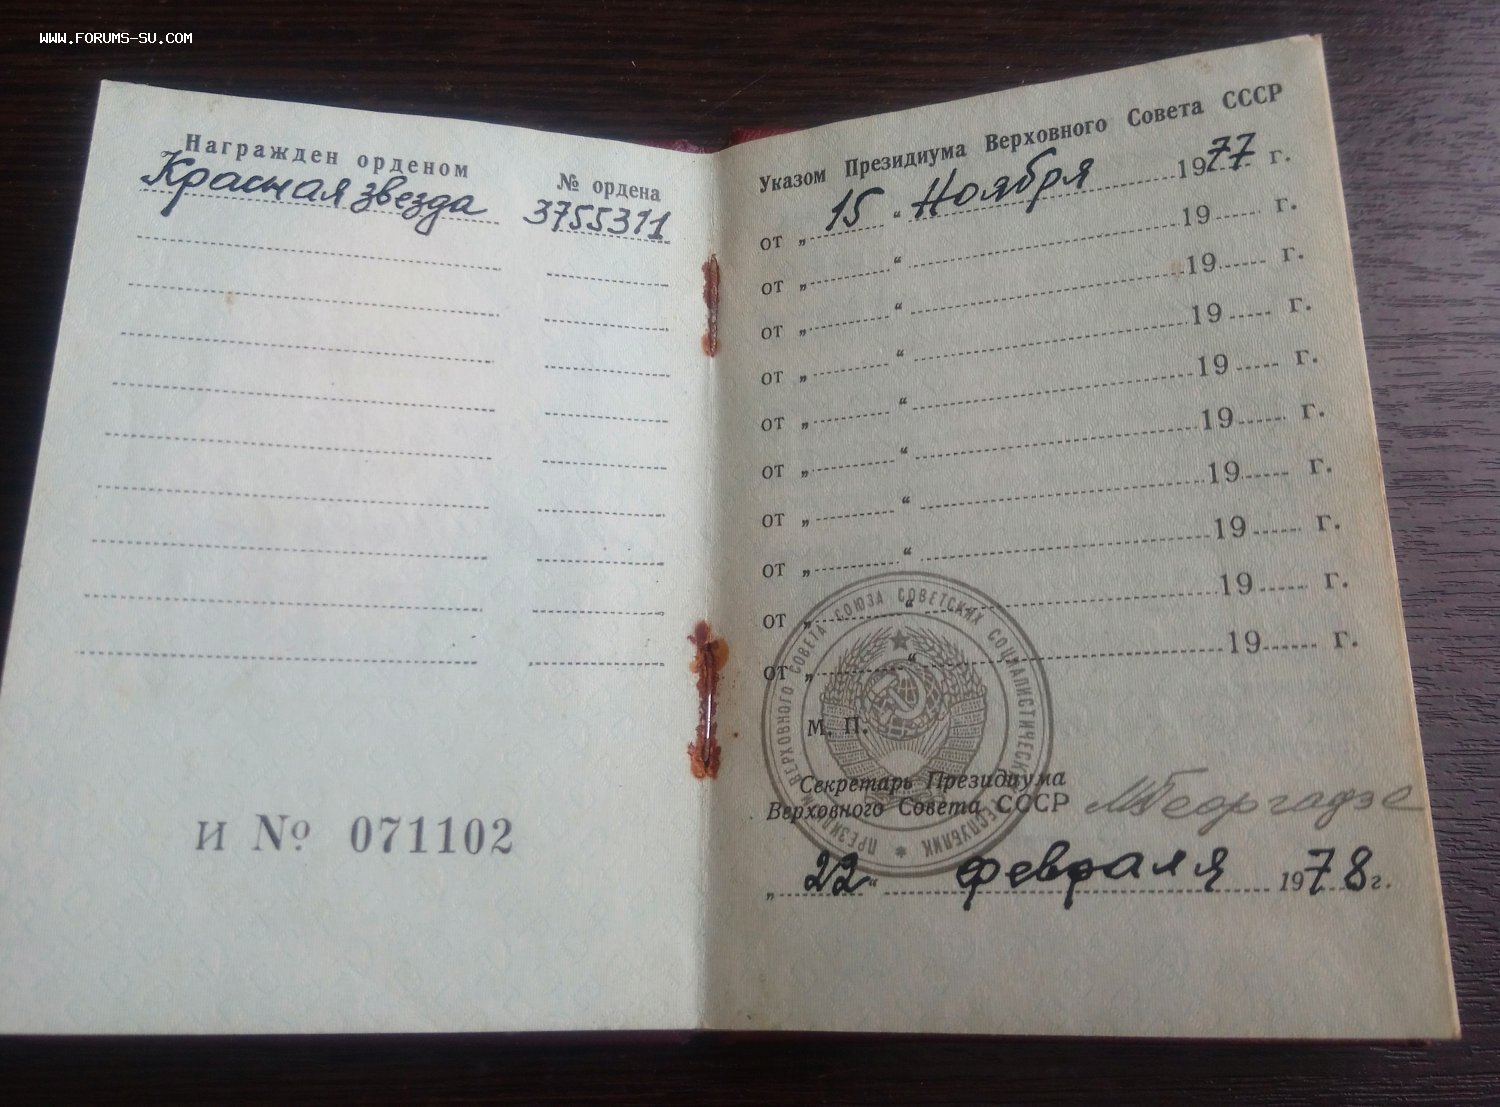 WWW.FORUMS-SU.COM
Награжден орденом
№ ордена
Красная звезда
3755311
Указом Президиума Верховного Совета СССР
от „ 15 “ Ноября 1977 г.
от „ “ 19 г.
от „ “ 19 г.
от „ “ 19 г.
от „ “ 19 г.
от „ “ 19 г.
от „ “ 19 г.
от „ “ 19 г.
от „ “ 19 г.
от „ “ 19 г.
ПРЕЗИДИУМ ВЕРХОВНОГО СОВЕТА СОЮЗА СОВЕТСКИХ СОЦИАЛИСТИЧЕСКИХ РЕСПУБЛИК
М. П.
Секретарь Президиума
Верховного Совета СССР МГеоргадзе
„ 22 “ февраля 1978 г.
И № 071102